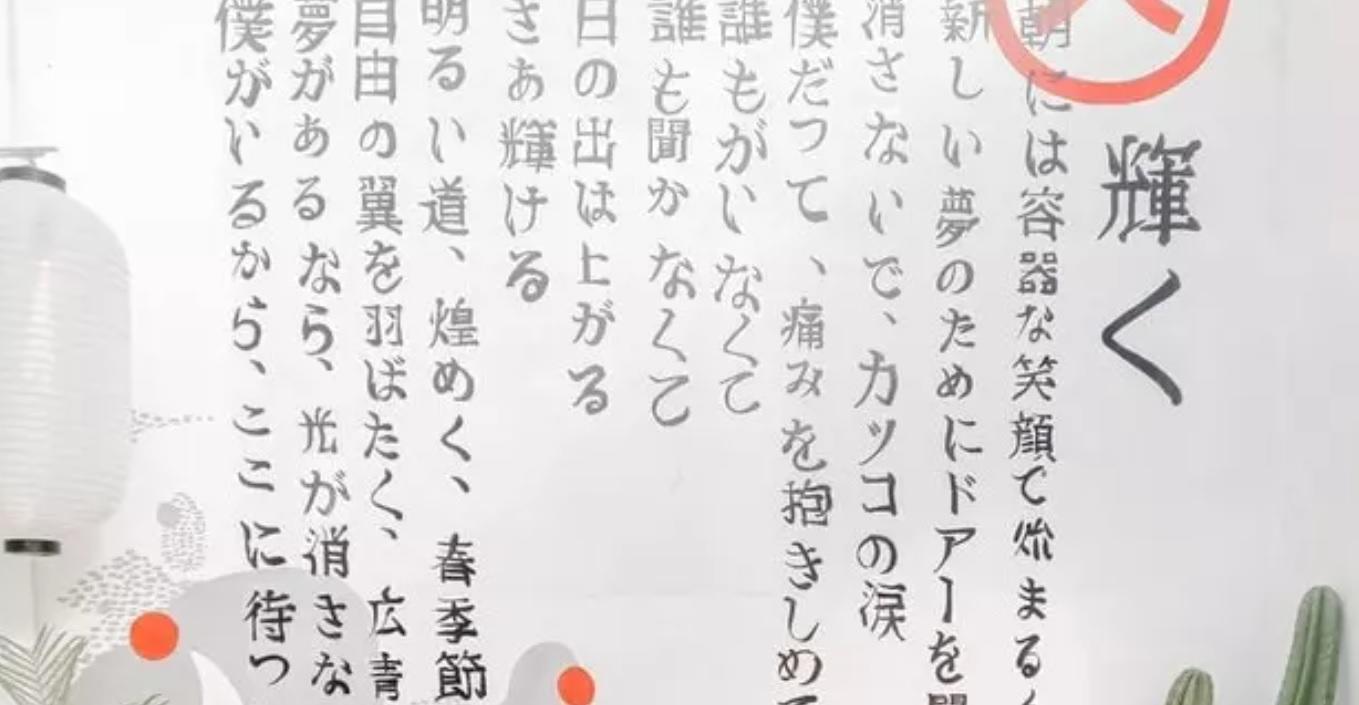 輝く
朝には容器な笑顔で始まる
新しい夢のためにドアーを
消さないで、カッコの涙
僕だって、痛みを抱きしめて
誰もがいなくて
誰も聞かなくて
日の出は上がる
さあ輝ける
明るい道、煌めく、春季節
自由の翼を羽ばたく、広青
夢があるなら、光が消さな
僕がいるから、ここに待つ